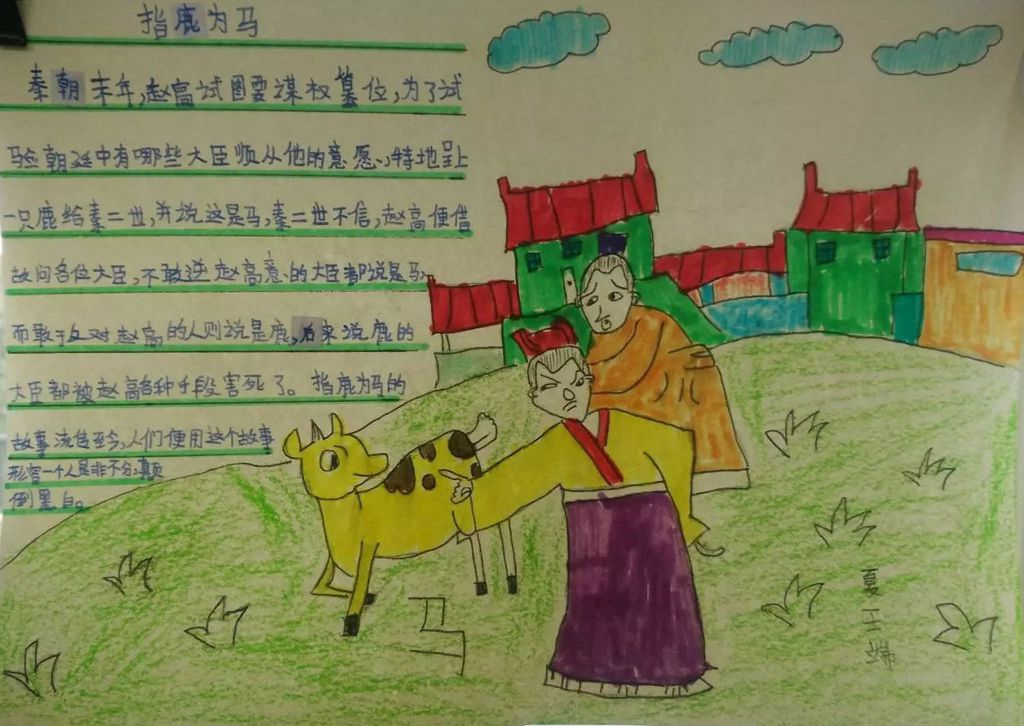 指鹿为马
秦朝末年,赵高试图要谋权篡位,为了试
验朝廷中有哪些大臣顺从他的意愿,特地呈上
一只鹿给秦二世,并说这是马,秦二世不信,赵高便借
故问各位大臣,不敢逆赵高意的大臣都说是马,
而敢于反对赵高的人则说是鹿,后来说鹿的
大臣都被赵高各种手段害死了。指鹿为马的
故事流传至今,人们便用这个故事
形容一个人是非不分,颠
倒黑白。
马
夏王端